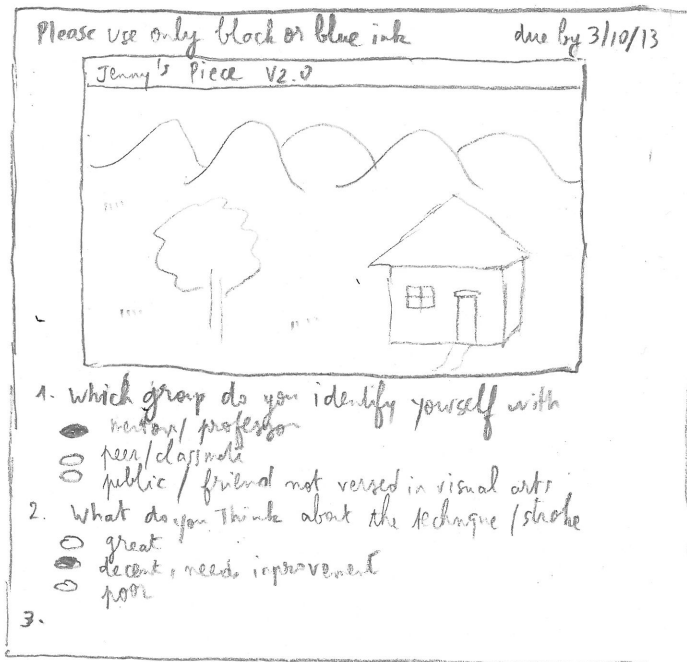 Please use only black or blue ink due by 3/10/13
Jenny's Piece V2.0
1. Which group do you identify yourself with
mentor/ professor
peer/classmate
public / friend not versed in visual arts
2. What do you think about the technique /stroke
great
decent, needs improvement
poor
3.